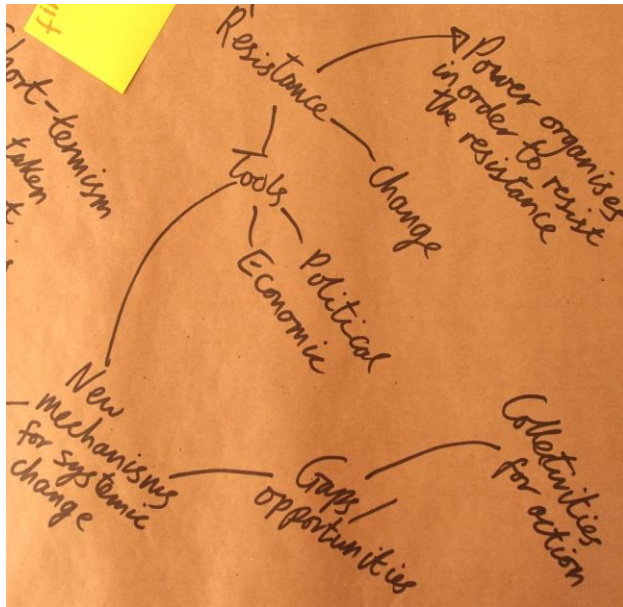 fi
Short-termism
taken
Resistance
Power organises
in order to resist
the resistance
Tools
change
Political
Economic
New
mechanisms
for systemic
change
Gaps/
opportunities
Colletivities
for action